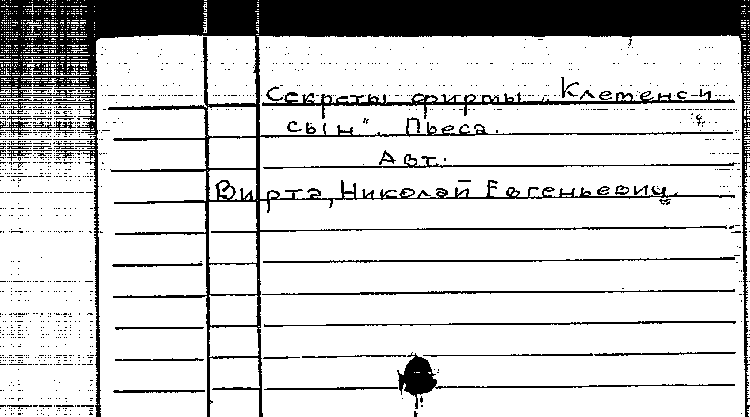 Секреты фирмы „Клеменс и
сын". Пьеса.
Авт.:
Вирта, Николай Евгеньевич.